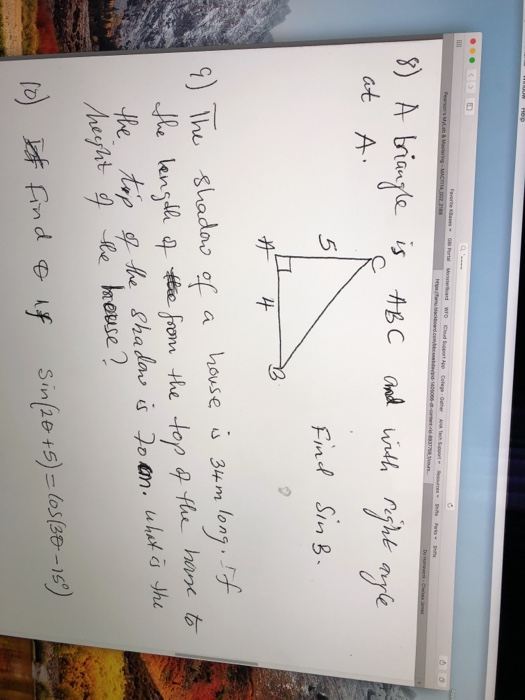 8) A triangle is ABC and with right angle
at A.
C
5
A
4
B
Find Sin B.
9) The shadow of a house is 34m long. If
the length of from the top of the house to
the top of the shadow is 70m. what is the
height of the house?
10) Find θ if Sin(2θ+5)=Cos(3θ-15°)